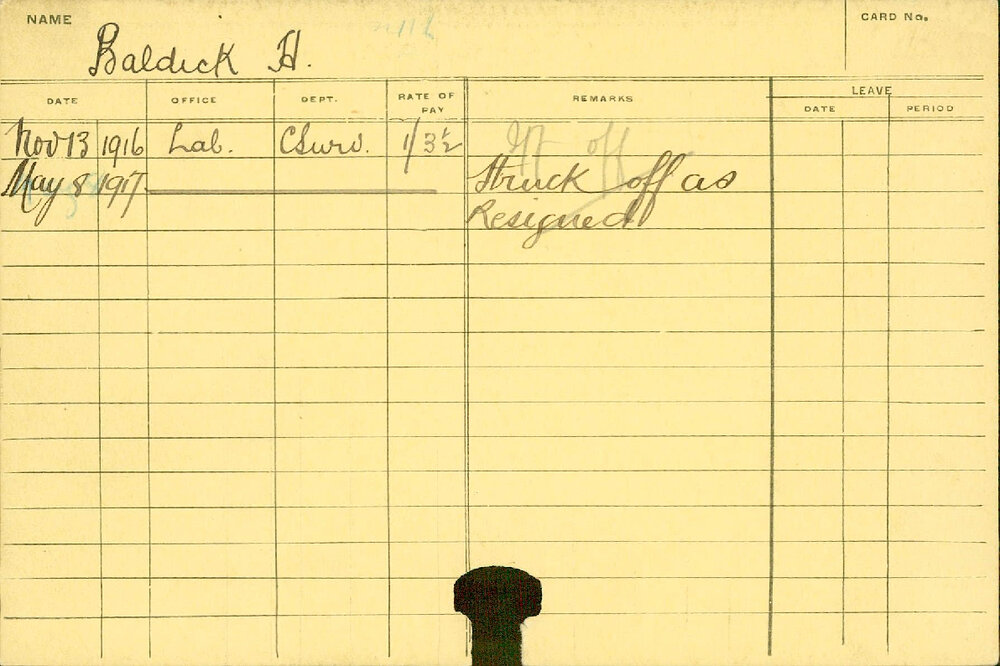 NAME
CARD No.
Baldick H.
DATE OFFICE DEPT. RATE OF PAY REMARKS LEAVE
DATE PERIOD
Nov 13 1916 Lab. CSurv. 1/3½ off
May 8 1917 Struck off as
Resigned